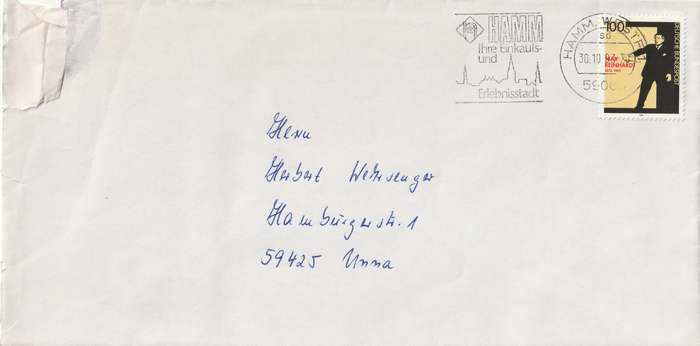 HAMM
Ihre Einkaufs-
und
Erlebnisstadt
HAMM, WESTF
sd
30.10.
100
DEUTSCHE BUNDESPOST
MAX
REINHARDT
Herrn
Herbert Wehrsenger
Hamburgerstr. 1
59425 Unna